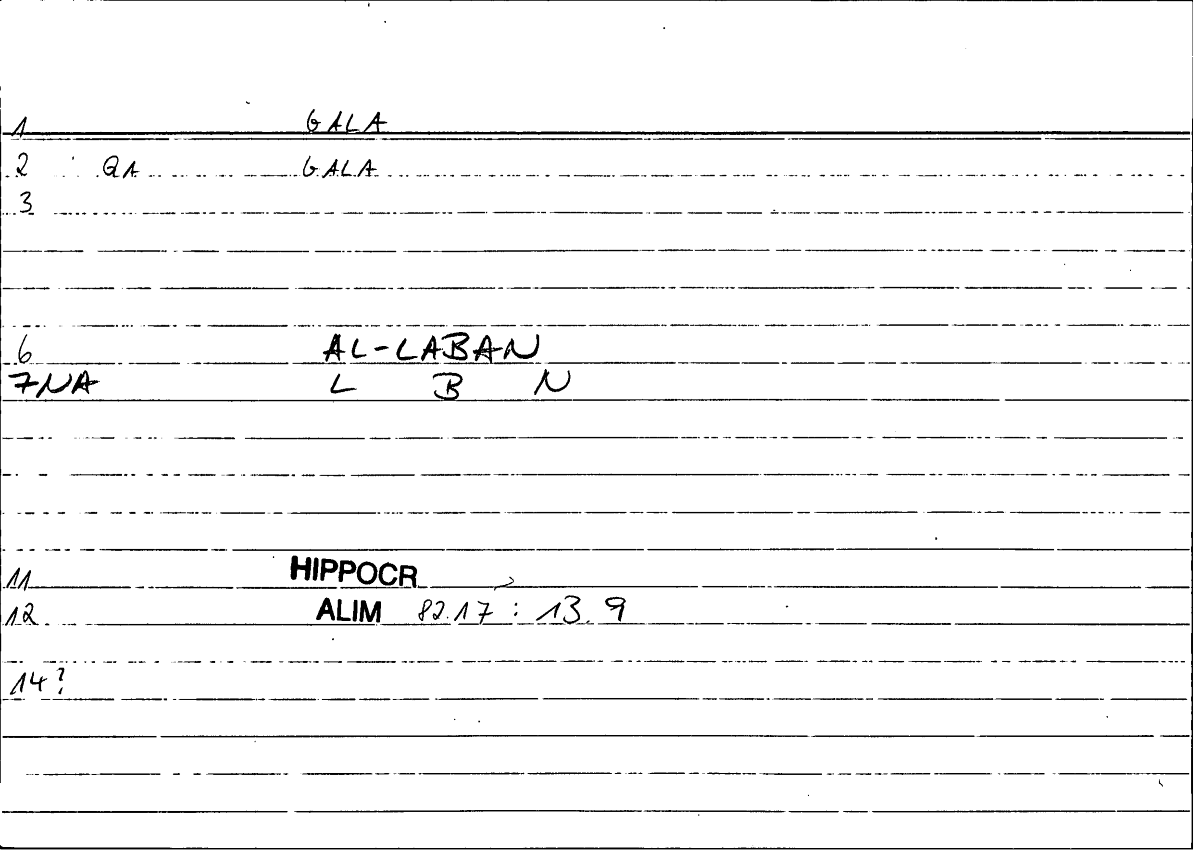 1 GALA
2 QA GALA
3
6 AL-LABAN
7NA L B N
11 HIPPOCR
12 ALIM 82.17 : 13.9
14?